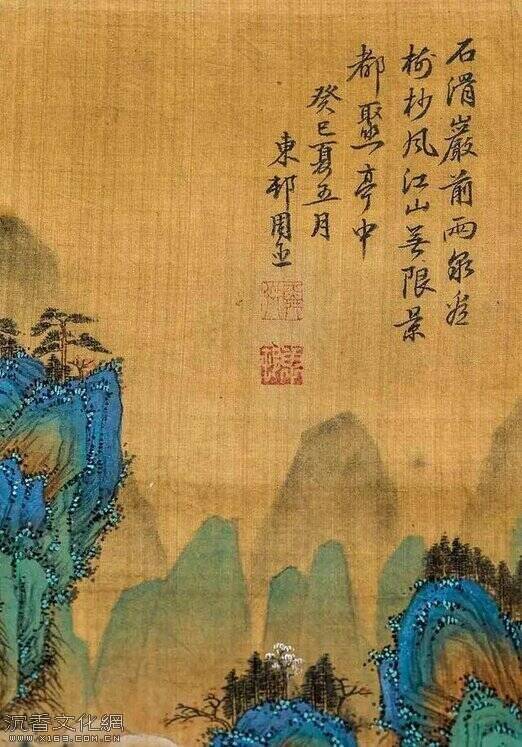 石滑巖前雨泉香
樹杪風江山無限景
都聚亭中
癸巳夏五月
東邨周臣
沉香文化網